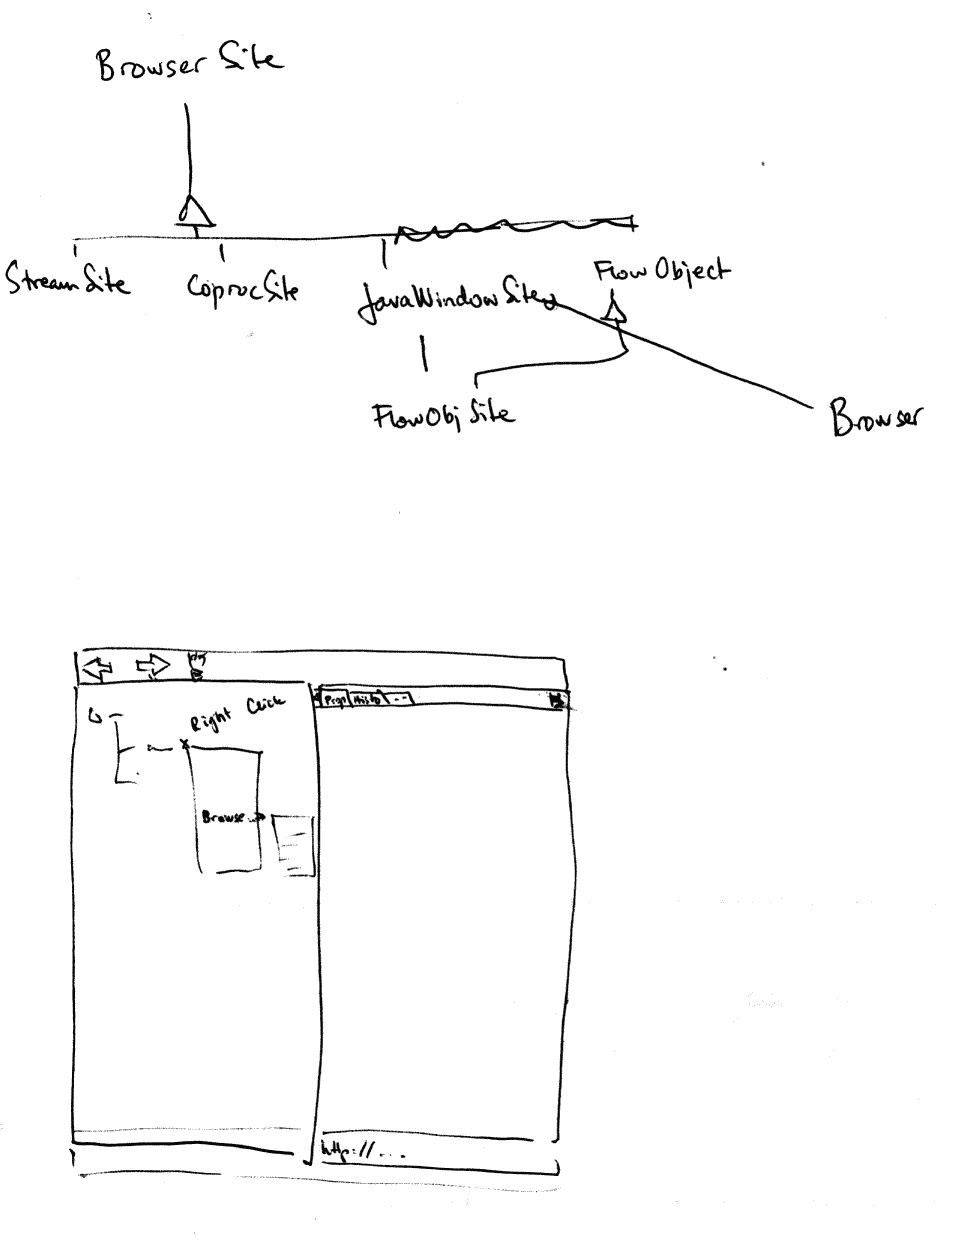 Browser Site
StreamSite
CoprocSite
JavaWindowSite
FlowObject
FlowObjSite
Browser
Props
Histo
--
Right Click
Browse..
http://...